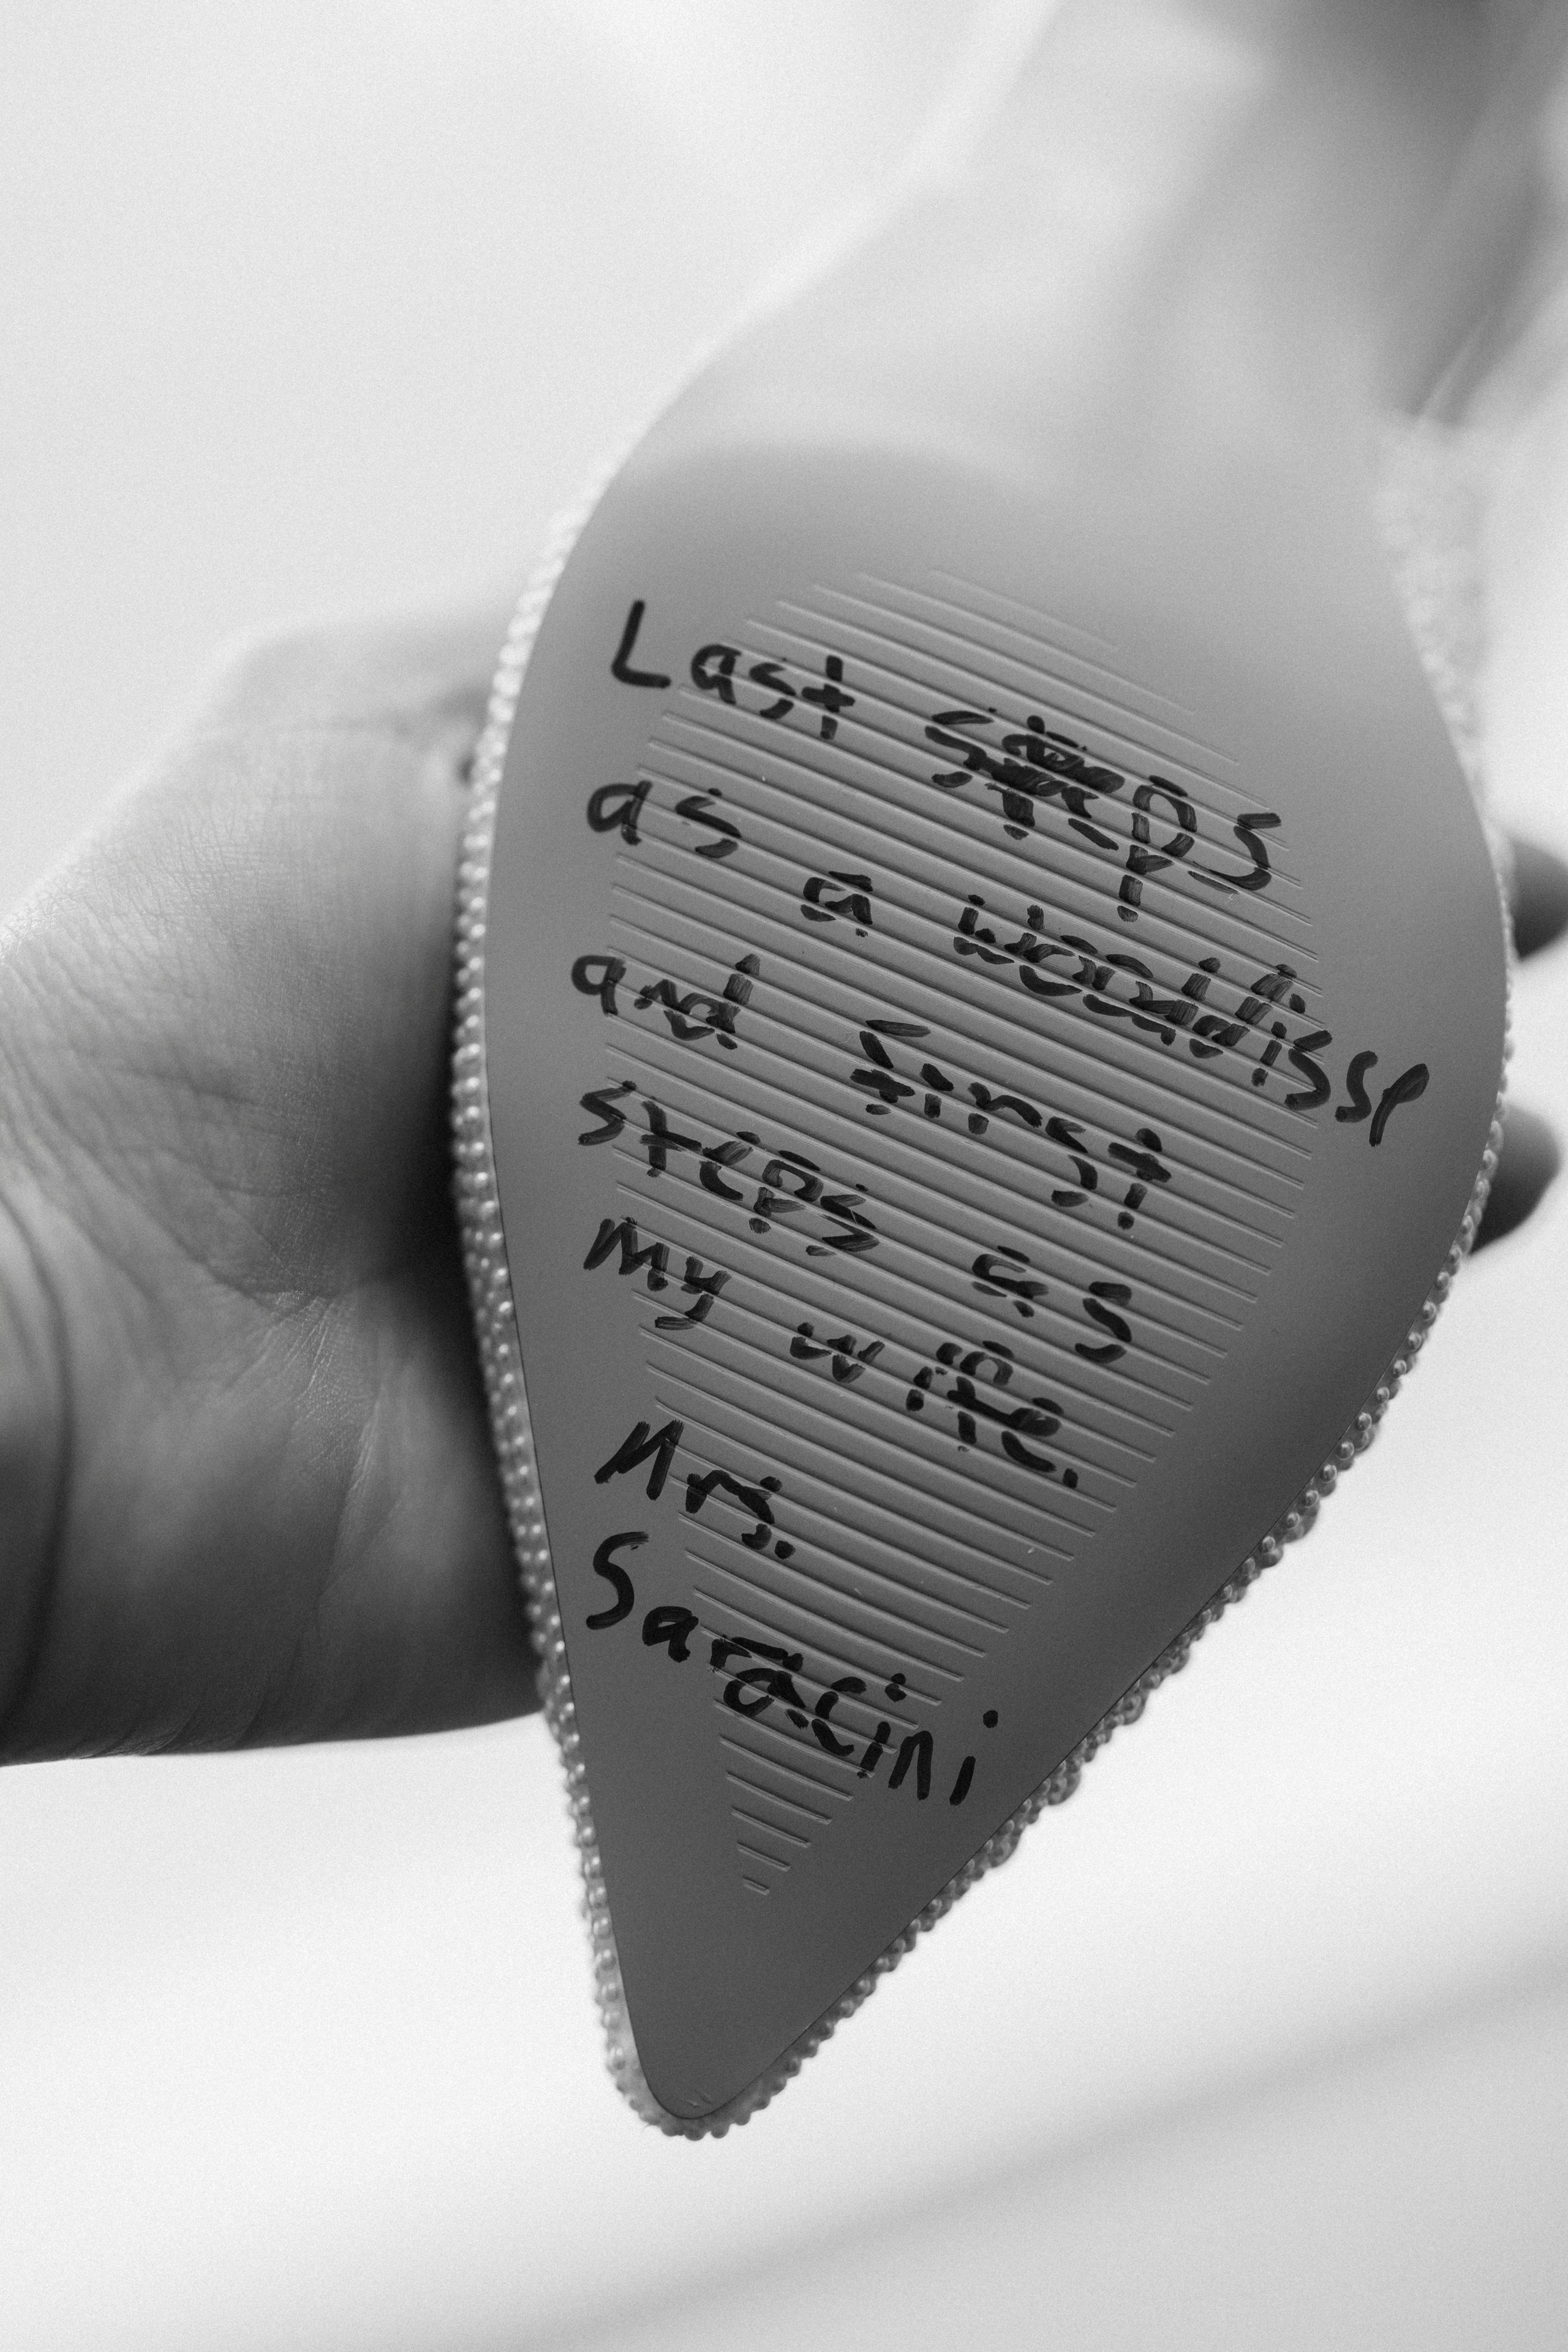 Last steps
as a Woodlisse
and first
steps as
my wife.
Mrs.
Saracini